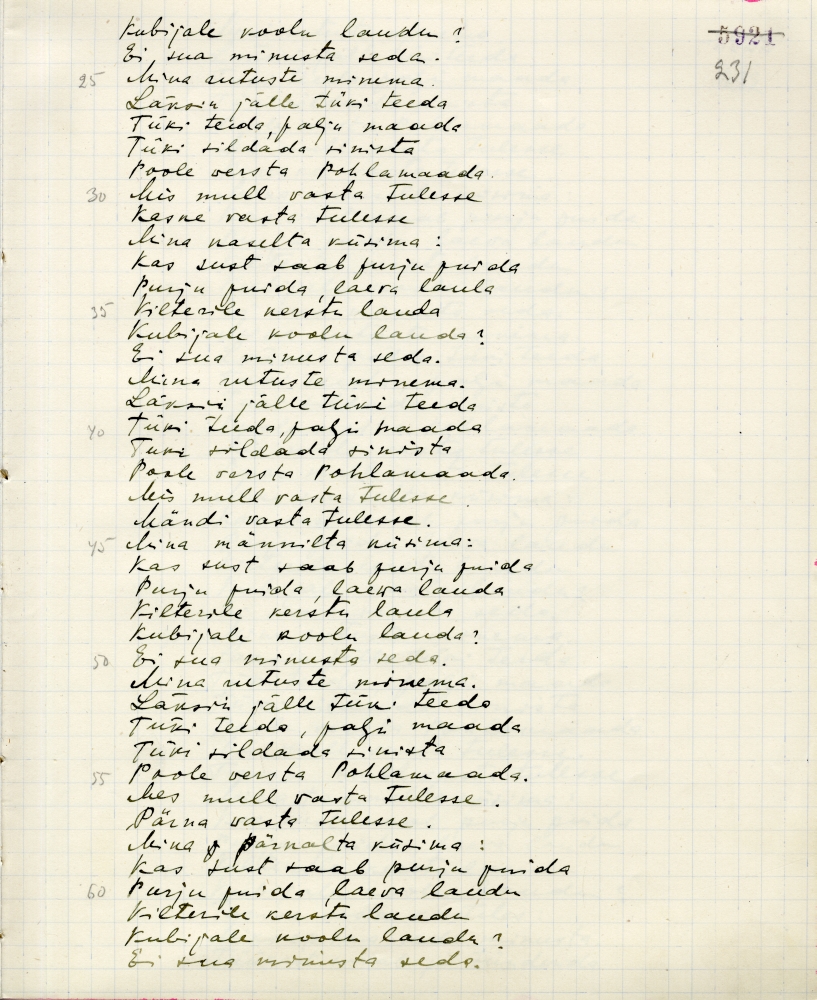 5921
231
Kubijale koolu laudu?
Ei sua minusta seda.
25 Mina rutuste minema.
Läksin jälle tüki teeda
Tüki teeda, palju maada
Tüki sildada sinista
Poole versta Pohlamaada.
30 Mis mull vasta tulesse
Kaske vasta tulesse
Mina kaselta küsima:
Kas sust saab purju puida
Purju puida, laeva laula
35 Kilterile kerstu lauda
Kubijale koolu lauda?
Ei sua minusta seda.
Mina rutuste minema.
Läksin jälle tüki teeda
40 Tüki teeda, palju maada
Tüki sildada sinista
Poole versta Pohlamaada.
Mis mull vasta tulesse
Mändi vasta tulesse.
45 Mina männilta küsima:
Kas sust saab purju puida
Purju puida, laewa lauda
Kilterile kerstu laula
Kubijale koolu lauda?
50 Ei sua minusta seda.
Mina rutuste minema.
Läksin jälle tüki teeda
Tüki teeda, palju maada
Tüki sildada sinista
55 Poole versta Pohlamaada.
Mes mull vasta tulesse.
Pärna vasta tulesse.
Mina pärnalta küsima:
Kas sust saab purju puida
60 Purju puida, laeva laudu
Kilterile kerstu laudu
Kubijale koolu laudu?
Ei sua minusta seda.